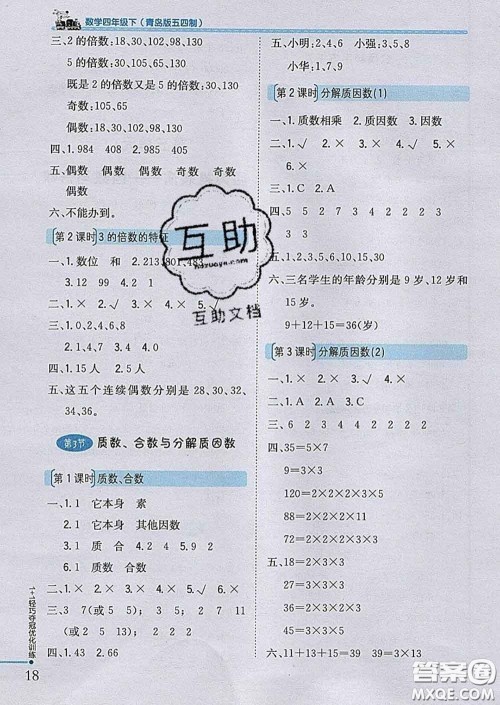 数学四年级下（青岛版五四制）
三、2的倍数:18、30、102、98、130
5的倍数:30、65、130、105
既是2的倍数又是5的倍数:30、130
奇数:105、65
偶数:18、30、102、98、130
四、1.984 985 2.408 405
五、偶数 偶数 偶数 奇数 奇数
偶数
六、不能办到。
第2课时 3的倍数的特征
一、1.数位 和 2.213、801、483
3.12 99 4.2 1
二、1.× 2.× 3.× 4.√ 5.×
三、1.1,4,7 2.2 3.0 4.8
四、1.15人 2.11人
五、这五个连续偶数分别是28、30、32、
34、36。
第3节 质数、合数与分解质因数
第1课时 质数、合数
一、1.1 它本身 素
2.1 它本身 其他因数
3.1 质 合 4.2 5.9 2
6.1 质数 合数
二、1.× 2.× 3.× 4.× 5.√
三、3 7(或5 5) 3 2 7 11
2 13(或3 12) 2 23
四、1.43 2.66
五、小明:2、4、6 小强:3、5、8
小华:1、7、9
第2课时 分解质因数(1)
一、1.质数相乘 2.质因数 3.质因数
二、1.√ 2.× 3.× 4.× 5.×
6.×
三、1.C 2.A
四、5 5 2 7 3 2 2 3 2
3
五、1,2,3,5,6,10,15,30
六、三名学生的年龄分别是9岁、12岁和
15岁。
9+12+15=36(岁)
第3课时 分解质因数(2)
一、1.× 2.√ 3.× 4.×
二、1.C 2.C 3.A
三、6 2 3 4 2 2 2 2 2
四、35=5×7
9=3×3
120=2×2×2×3×5
72=2×2×2×3×3
64=2×2×2×2×2×2
五、18=2×3×3
27=3×3×3
45=3×3×5
30=2×3×5
六、11+13+15=39 39=3×13
1+1轻巧夺冠优化训练
18
互助
互助文档
答案圈
MXQE.COM